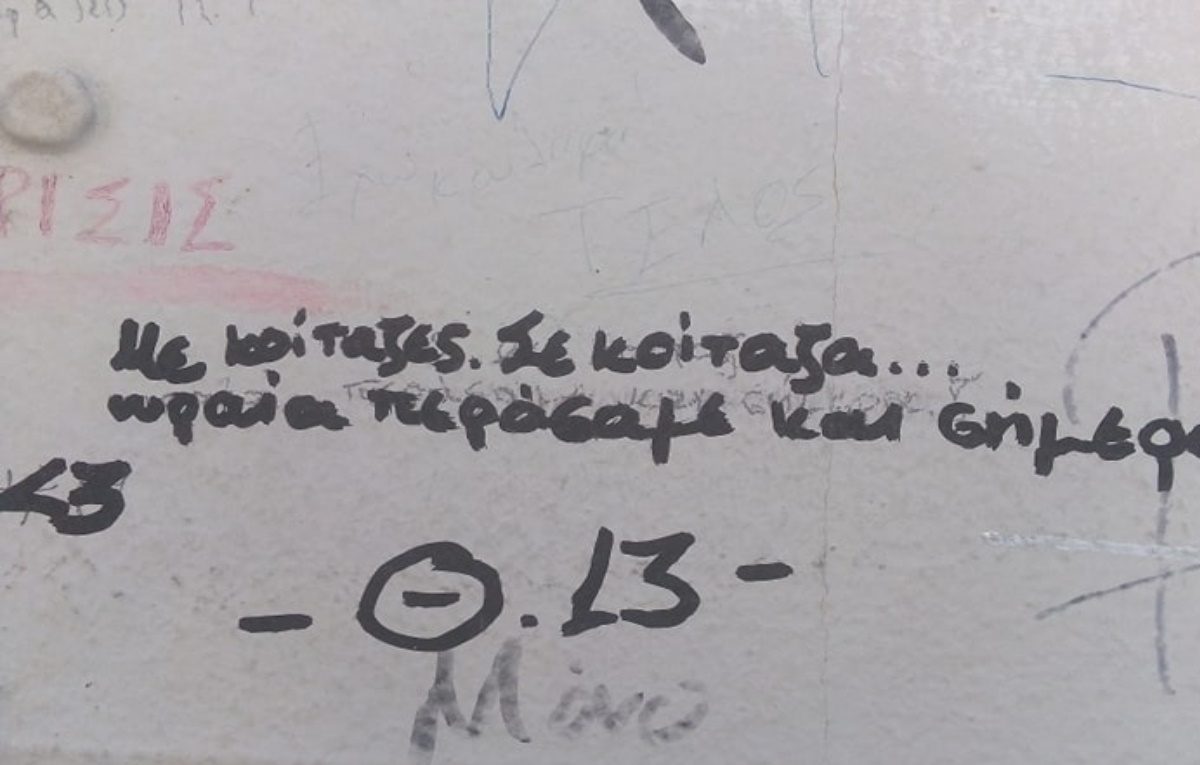 ΡΙΣΙΣ
ΤΕΛΟΣ
Με κοίταξες. Σε κοίταξα...
ωραία περάσαμε και σήμερ
<3
- Θ.13 -
Μόνο